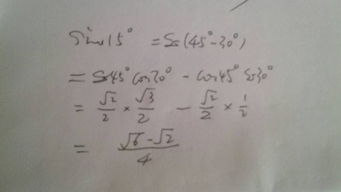 Sin15° = Sin(45°-30°)
= Sin45°cos30° - cos45°Sin30°
= √2/2 × √3/2 - √2/2 × 1/2
= (√6-√2)/4